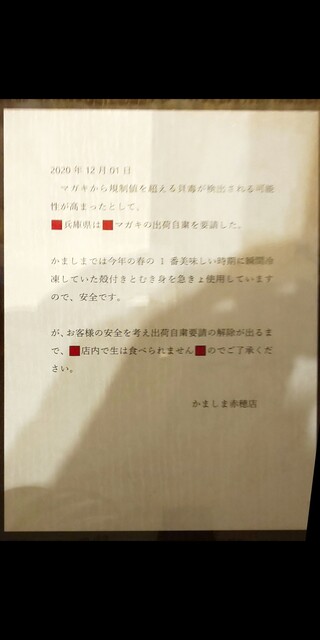 2020年12月01日
マガキから規制値を超える貝毒が検出される可能
性が高まったとして、
兵庫県はマガキの出荷自粛を要請した。
かましまでは今年の春の1番美味しい時期に瞬間冷
凍していた殻付きとむき身を急きょ使用しています
ので、安全です。
が、お客様の安全を考え出荷自粛要請の解除が出るま
で、店内で生は食べられませんのでご了承くだ
さい。
かましま赤穂店